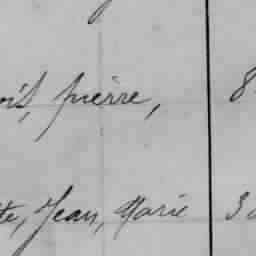 pierre, 8
te, Jean, Marie 3